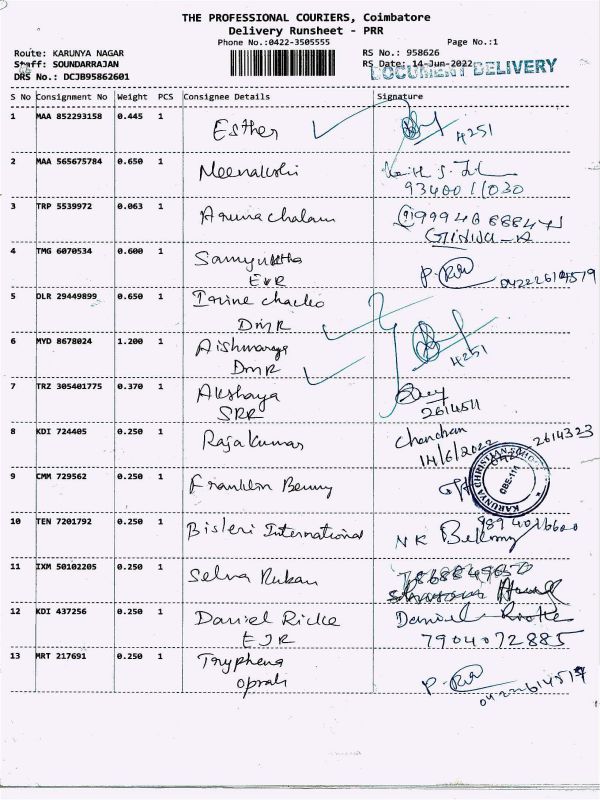 THE PROFESSIONAL COURIERS, Coimbatore
Delivery Runsheet - PRR
Phone No.:0422-3505555 Page No.:1
Route: KARUNYA NAGAR RS No.: 958626
Staff: SOUNDARRAJAN RS Date: 14-Jun-2022
DOCUMENT DELIVERY
DRS No.: DCJB95862601
S No Consignment No Weight PCS Consignee Details Signature
1 MAA 852293158 0.445 1 Esther 4251
2 MAA 565675784 0.650 1 Meenakshi
9340011030
3 TRP 5539972 0.063 1 Arunachalam
4 TMG 6070534 0.600 1 Samyuktha
EVR
5 DLR 29449899 0.650 1 Irine chacko
DMR
6 MYD 8678024 1.200 1 Aishwarya 4251
DMR
7 TRZ 305401775 0.370 1 Akshaya
SRR 2614511
8 KDI 724405 0.250 1 Rajakumar Chandran
14/6/2022 2614323
9 CMM 729562 0.250 1 Franklin Benny
KARUNYA CHRISTIAN SCHOOL
CBE-114
10 TEN 7201792 0.250 1 Bisleri International
NK
11 IXM 50102205 0.250 1 Selva
12 KDI 437256 0.250 1 Daniel Ricke Daniel
EJR 7904072885
13 MRT 217691 0.250 1 Tryphena
Oprah